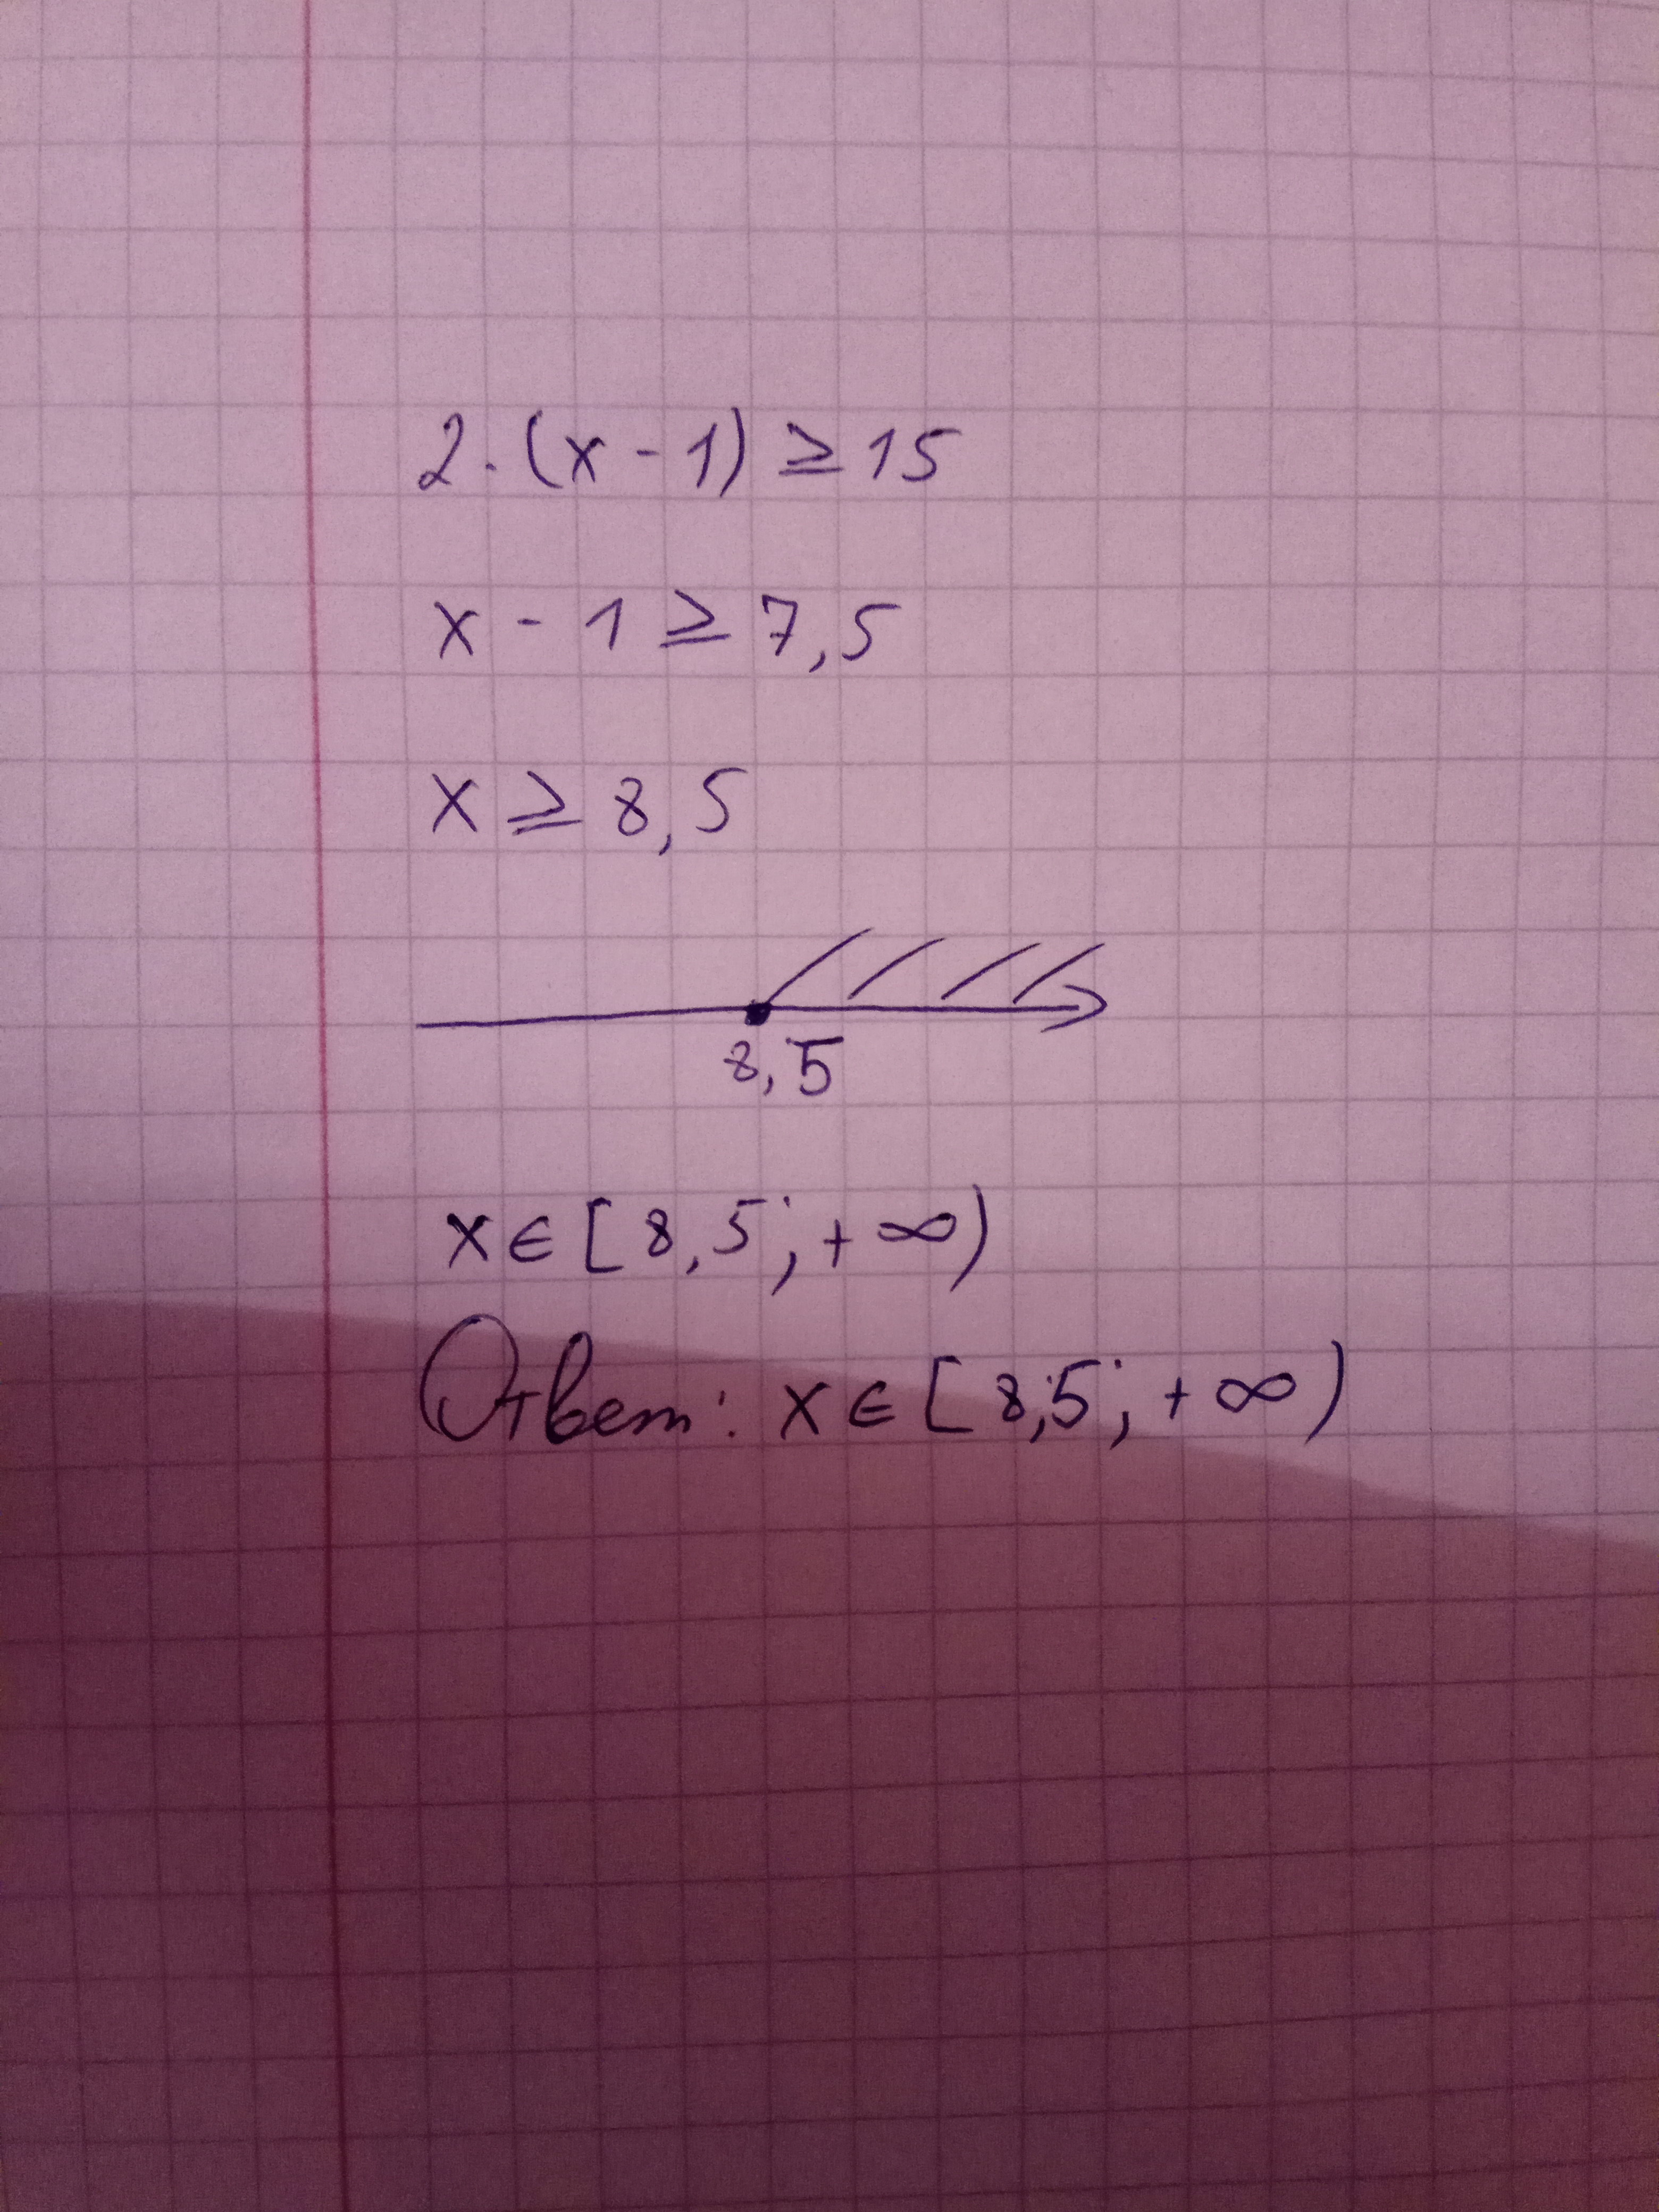 2·(x-1)≥15
x-1≥7,5
x≥8,5
8,5
x∈[8,5;+∞)
Ответ: x∈[8,5;+∞)